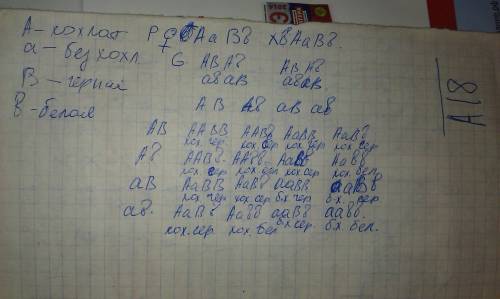 А - хохлат Р ♀ АаВв х ♂ АаВв.
а - без хохл. G АВ Ав АВ Ав
В - чёрная ав аВ ав аВ
в - белая АВ Ав аВ ав
АВ ААВВ ААВв АаВВ АаВв
хох. чер. хох. сер. хох. чер. хох. сер.
Ав ААВв ААвв АаВв Аавв
хох. сер. хох. бел. хох. сер. хох. бел.
аВ АаВВ АаВв ааВВ ааВв
хох. чер. хох. сер. бх. чер. бх. сер.
ав. АаВв Аавв ааВв аавв.
хох. сер. хох. бел бх. сер. бх. бел.
А18